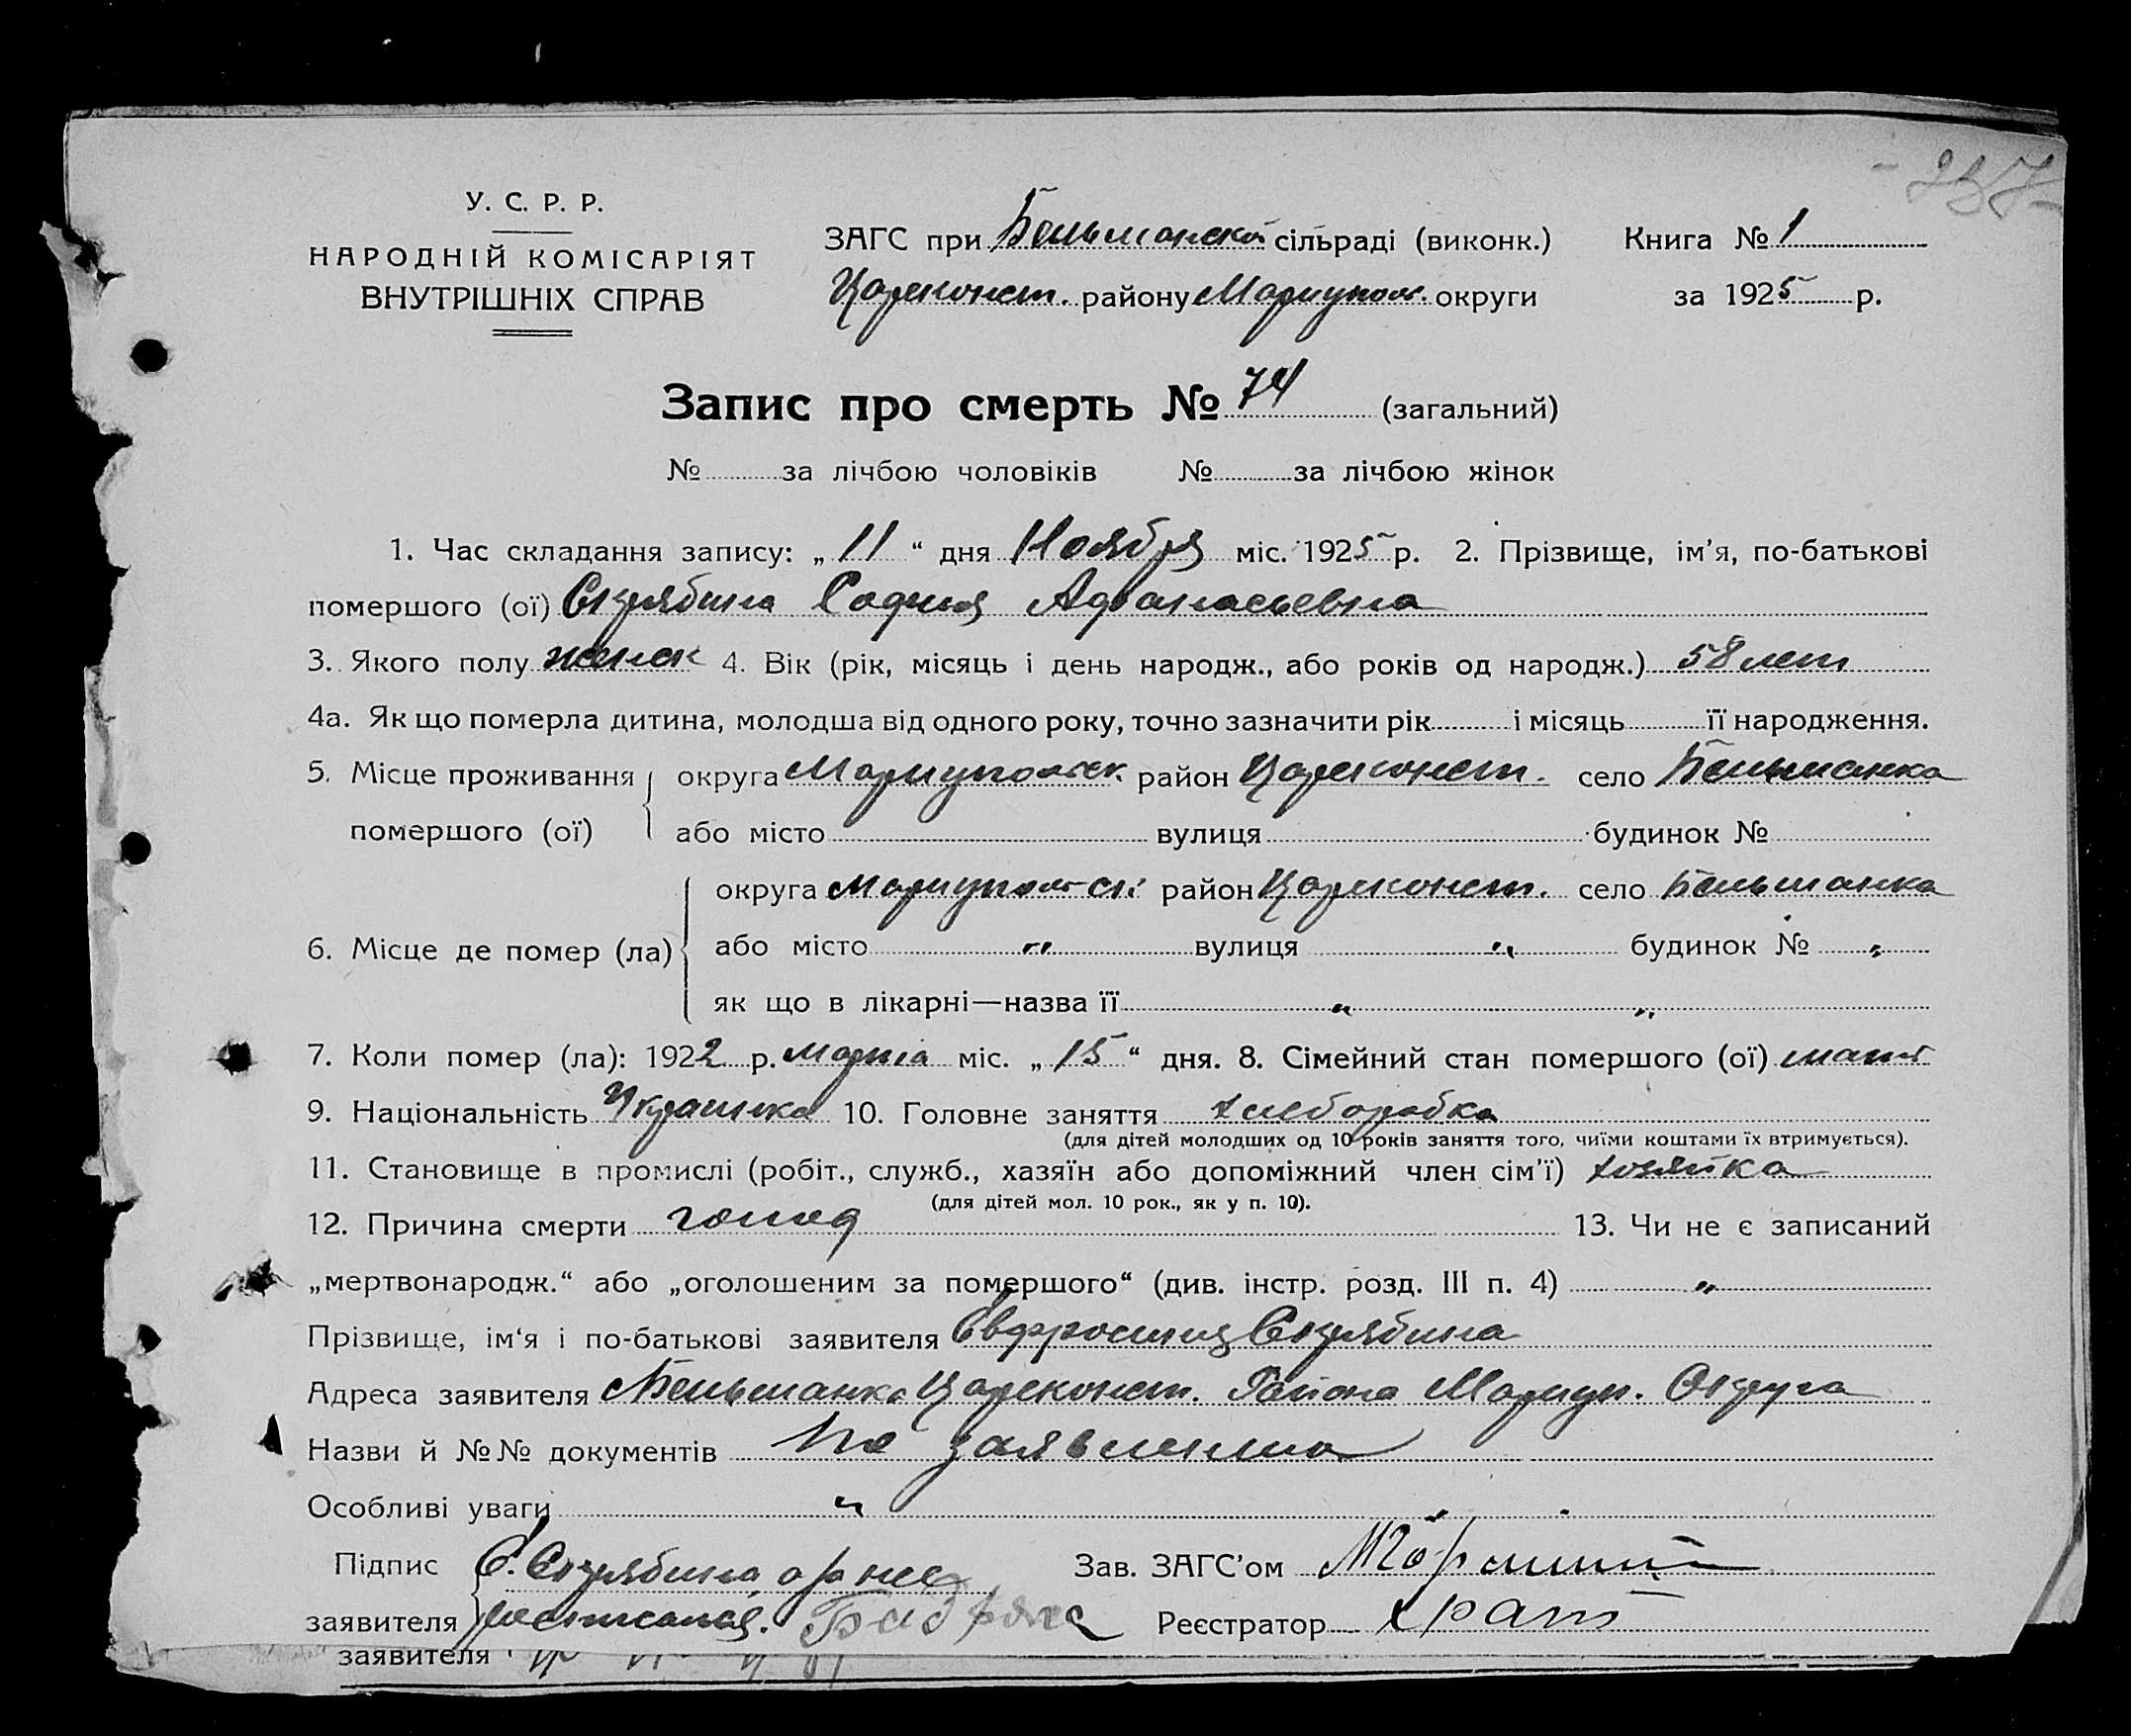 257
У. С. Р. Р.
НАРОДНІЙ КОМІСАРІЯТ
ВНУТРІШНІХ СПРАВ
ЗАГС при Бельманской сільраді (виконк.)
Книга № 1
Цареконст. району Мариупол. округи
за 1925 р.
Запис про смерть № 74 (загальний)
№ за лічбою чоловіків № за лічбою жінок
1. Час складання запису: „ 11 “ дня Ноября міс. 1925 р. 2. Прізвище, ім’я, по-батькові
помершого (ої) Скрябина София Афанасьевна
3. Якого полу женск 4. Вік (рік, місяць і день народж., або років од народж.) 58 лет
4а. Як що померла дитина, молодша від одного року, точно зазначити рік і місяць її народження.
5. Місце проживання округа Мариупольск. район Цареконст. село Бельманка
помершого (ої) або місто вулиця будинок №
округа Мариупольск район Цареконст. село Бельманка
6. Місце де помер (ла) або місто „ вулиця „ будинок № „
як що в лікарні—назва її „ „
7. Коли помер (ла): 1922 р. марта міс. „ 15 “ дня. 8. Сімейний стан помершого (ої) мать
9. Національність Украинка 10. Головне заняття хлеборобка
(для дітей молодших од 10 років заняття того, чиїми коштами їх втримується).
11. Становище в промислі (робіт., служб., хазяїн або допоміжний член сім’ї) хозяйка
(для дітей мол. 10 рок., як у п. 10).
12. Причина смерти голод 13. Чи не є записаний
„мертвонародж.“ або „оголошеним за помершого“ (див. інстр. розд. III п. 4) „
Прізвище, ім‘я і по-батькові заявителя Евфросиния Скрябина
Адреса заявителя Бельманка Цареконст. Района Мариуп. Округа
Назви й №№ документів по заявлению
Особливі уваги „
Підпис Е. Скрябина, а за нее
Зав. ЗАГС’ом
заявителя расписался.
Реєстратор
заявителя